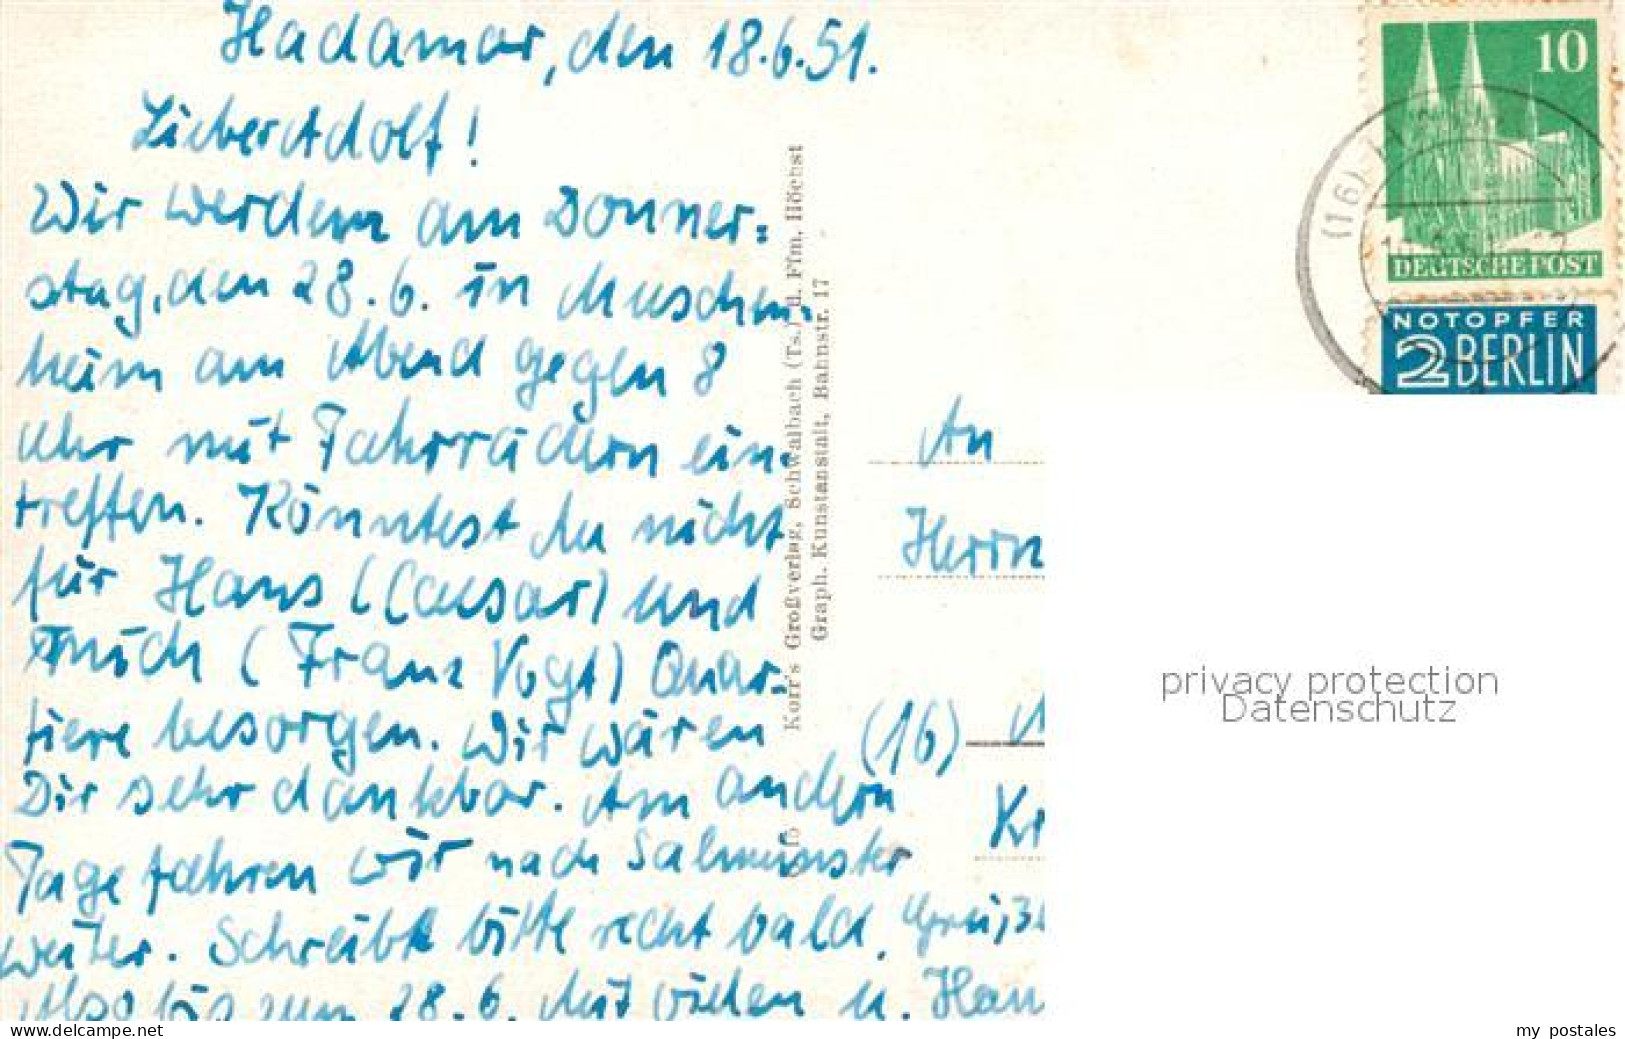 Hadamar, den 18.6.51.
Lieber Adolf!
Wir werden am Donner-
stag, den 28.6. in Muschen-
heim am Abend gegen 8
Uhr mit Fahrrädern ein-
treffen. Könntest du nicht
für Hans (Caesar) und
mich (Franz Vogt) Quar-
tiere besorgen. Wir wären
Dir sehr dankbar. Am andern
Tage fahren wir nach Salmünster
weiter. Schreibt bitte recht bald.
Also bis zum 28.6. Mit vielen
u. Han
Korr's Großverlag, Schwalbach (Ts.) u. Ffm. Höchst
Graph. Kunstanstalt, Bahnstr. 17
10
DEUTSCHE POST
NOTOPFER
2 BERLIN
(16)
An
Herrn
(16)
Kr
privacy protection
Datenschutz
www.delcampe.net
my postales